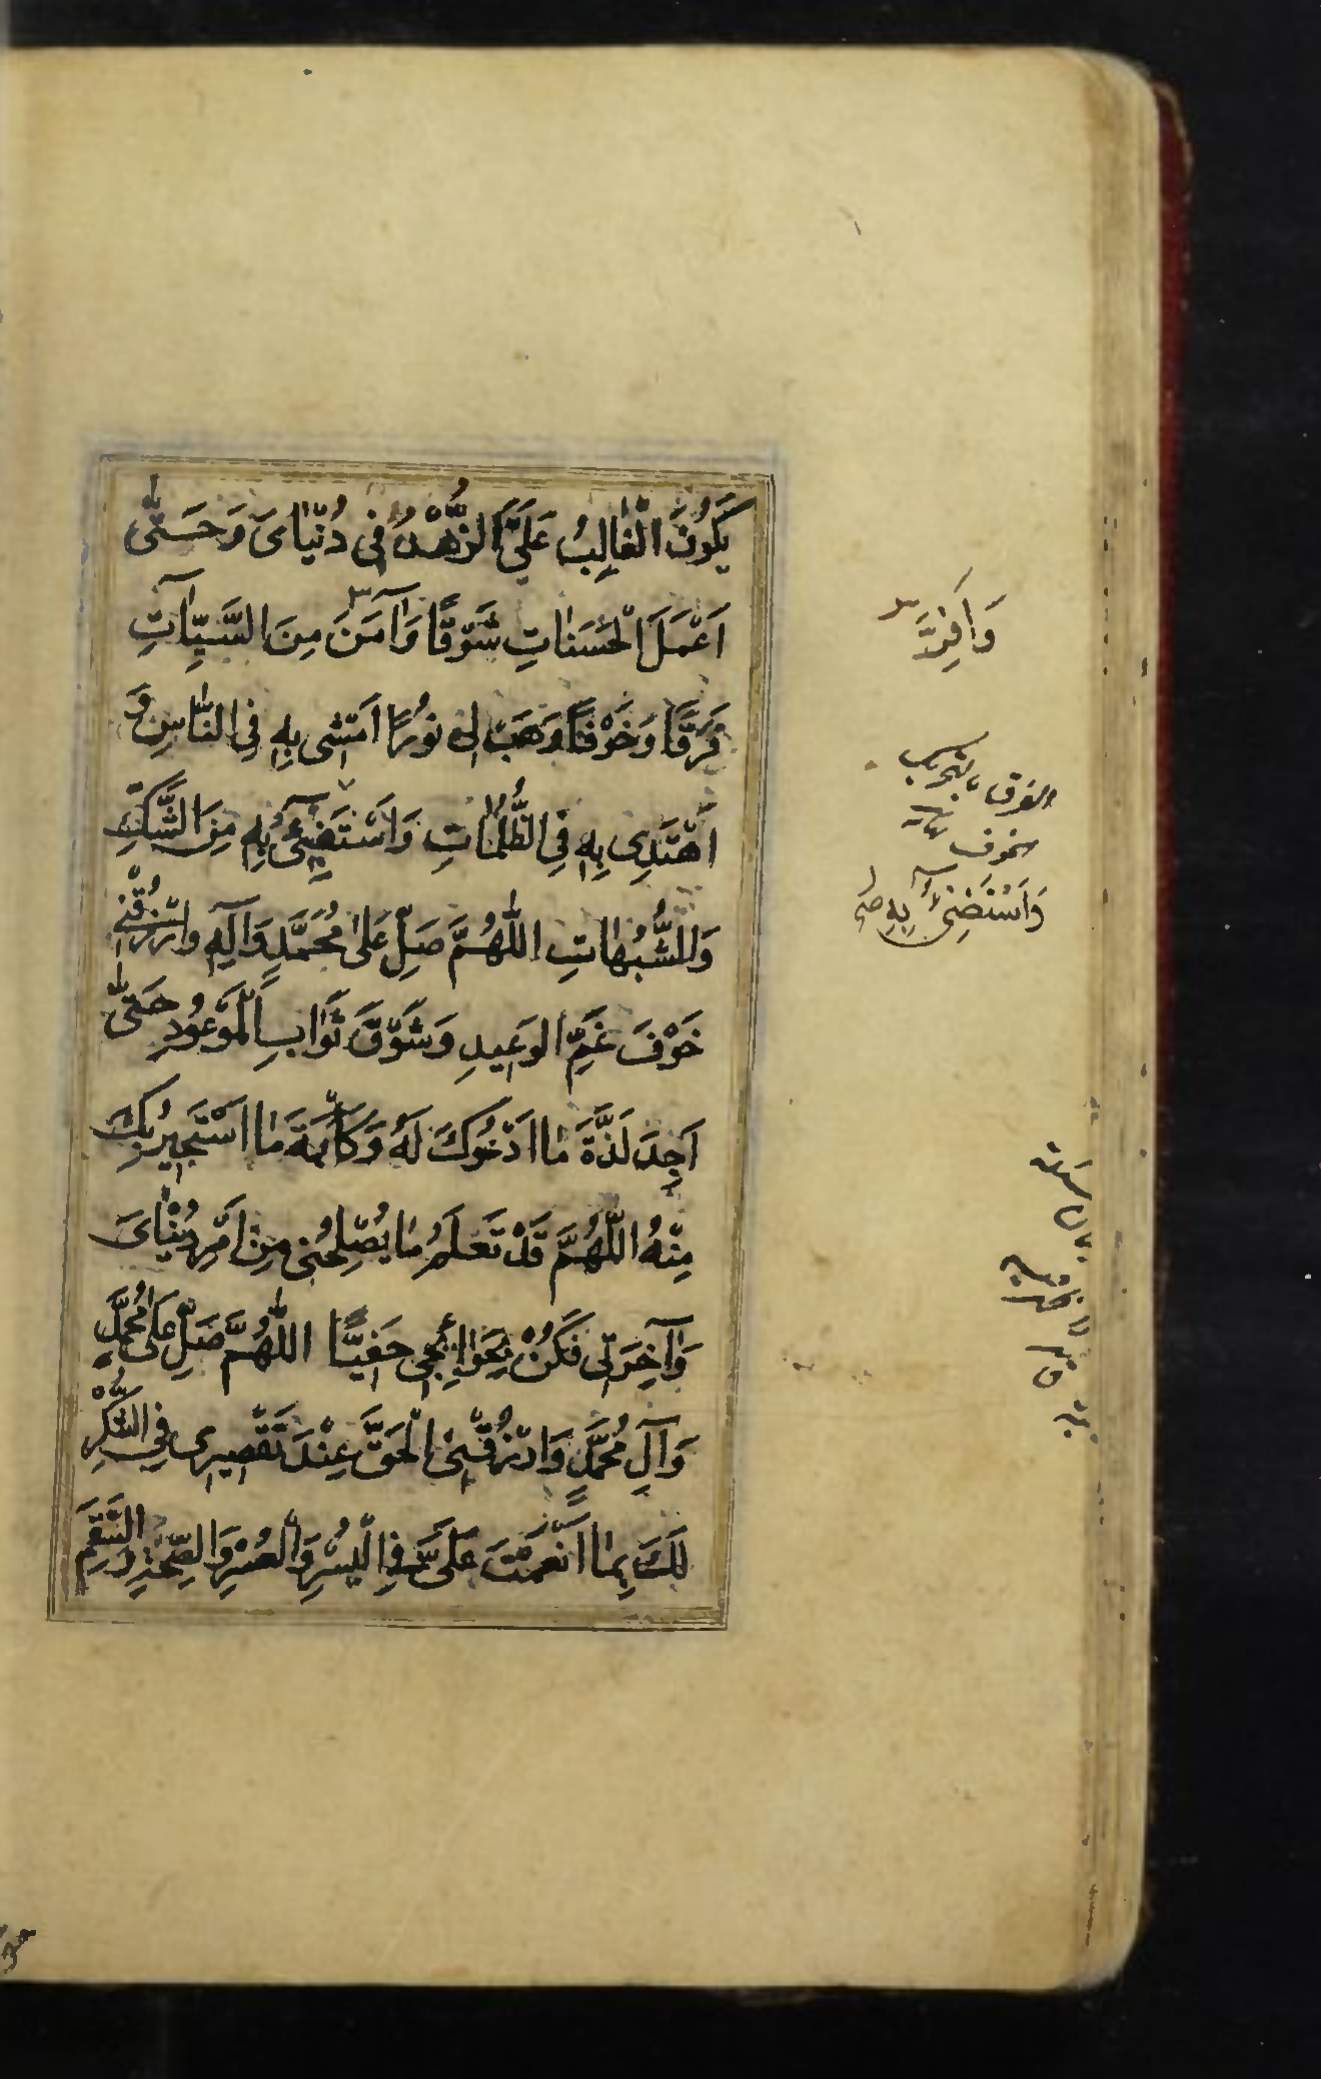 يَكُونَ الْغٰالِبُ عَلَيَّ الزُّهْدُ فِي دُنْيٰايَ وَحَتّٰى
اَعْمَلَ الْحَسَنٰاتِ شَوْقًا وَآمَنَ مِنَ السَّيِّئٰاتِ
فَرَقًا وَخَوْفًا وَهَبْ لِي نُورًا اَمْشِي بِهِ فِي النّٰاسِ وَ
اَهْتَدِي بِهِ فِي الظُّلُمٰاتِ وَاَسْتَضِيءُ بِهِ مِنَ الشَّكِّ
وَالشُّبُهٰاتِ اللّٰهُمَّ صَلِّ عَلىٰ مُحَمَّدٍ وَآلِهِ وَارْزُقْنِي
خَوْفَ غَمِّ الوَعِيدِ وَشَوْقَ ثَوٰابِ الْمَوْعُودِ حَتّٰى
اَجِدَ لَذَّةَ مٰا اَدْعُوكَ لَهُ وَكَاٰبَةَ مٰا اَسْتَجِيرُ بِكَ
مِنْهُ اللّٰهُمَّ قَدْ تَعْلَمُ مٰا يُصْلِحُنِي مِنْ اَمْرِ دُنْيٰايَ
وَآخِرَتِي فَكُنْ بِحَوٰائِجِي حَفِيًّا اللّٰهُمَّ صَلِّ عَلىٰ مُحَمَّدٍ
وَآلِ مُحَمَّدٍ وَارْزُقْنِي الْحَقَّ عِنْدَ تَقْصِيرِي فِي الشُّكْرِ
لَكَ بِمٰا اَنْعَمْتَ عَلَيَّ فِي الْيُسْرِ وَالْعُسْرِ وَالصِّحَّةِ وَالسَّقَمِ
الفرق بالتحريك
الخوف
وَاَسْتَضِيءَ بِهِ